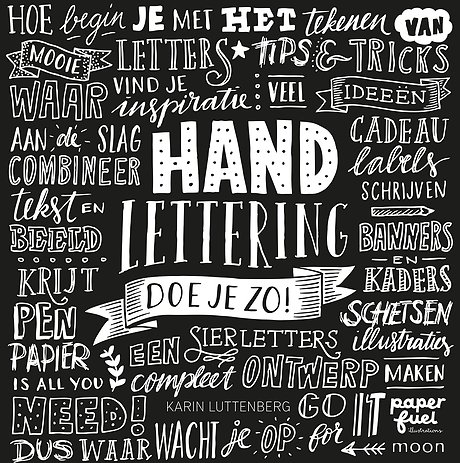 HOE begin JE MET HET tekenen VAN
MOOIE LETTERS TIPS & TRICKS
WAAR VIND JE inspiratie: VEEL IDEEËN
AAN de SLAG
CADEAU labels
COMBINEER
HAND
SCHRIJVEN
tekst EN
LETTERING
BEELD
BANNERS
EN
KRIJT
DOE JE ZO!
KADERS
PEN
SCHETSEN
PAPIER
EEN SIERLETTERS
illustraties
IS ALL YOU
compleet ONTWERP
MAKEN
NEED!
KARIN LUTTENBERG
GO
IT
paper fuel
illustrations
DUS WAAR WACHT je OP - for
moon